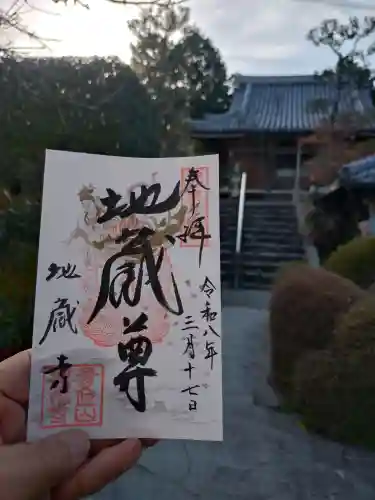 奉拝
令和八年
三月十七日
地蔵尊
地蔵寺